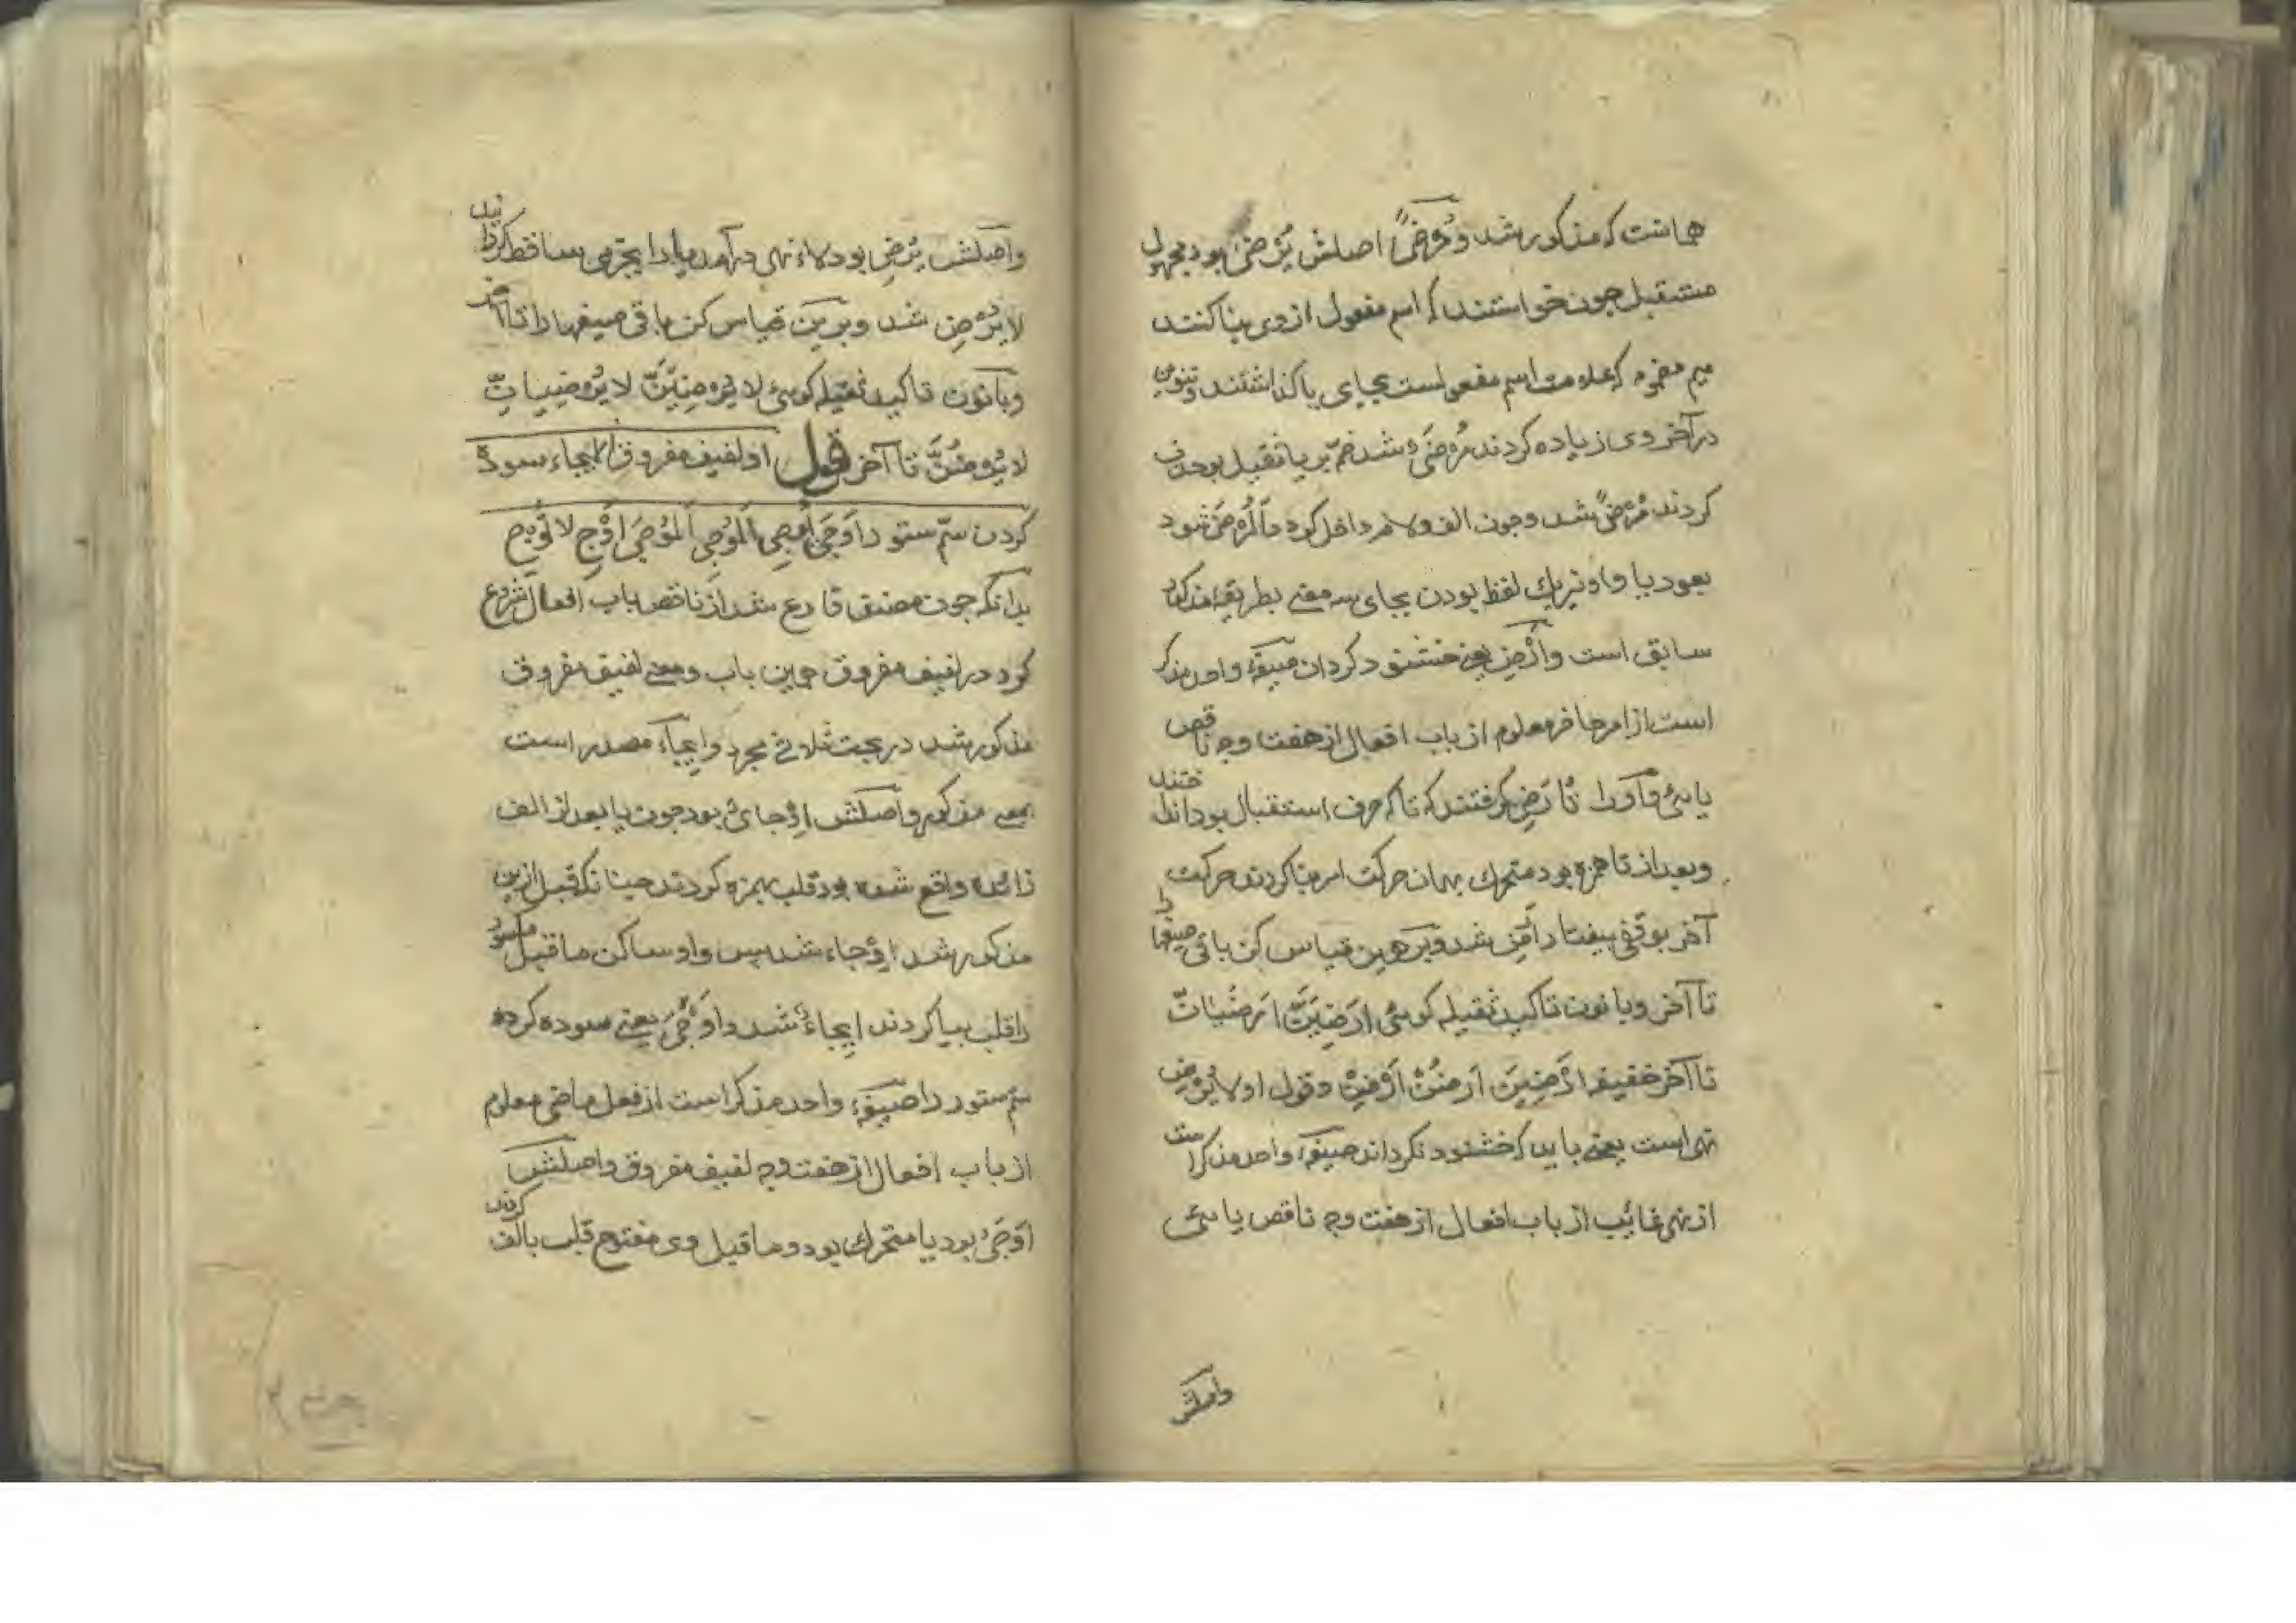 همانست که مذکور شد و مُرْضًى اصلش یُرْضَىُ بود مجهول
مستقبل چون خواستند که اسم مفعول از وی بنا کنند
میم مضموم که علامت اسم مفعول است بجای یا گذاشتند و تنوین
در آخر وی زیاده کردند مُرْضَىٌ شد ضمّه بر یا ثقیل بود حذف
کردند مُرْضًى شد و چون الف و لام داخل کرد الْمُرْضَى شود
بعود یا و یک لفظ بودن بجای سه معنی بطریقه مذکور
سابق است و اَرْضِ یعنی خشنود کردان صیغهٔ واحد مذکر
است از امر حاضر معلوم از باب افعال از هفت وجه ناقص
یائی را از تُأَرْضِی گرفتند که تا که حرف استقبال بود انداختند
و بعد از تا همزه بود متحرك بهمان حرکت امر بنا کردند حرکت
آخر بوقفی بیفتاد اَرْضِ شد و بر همین قیاس کن باقی صیغها را
تا آخر و با نون تاکید ثقیله کوئی اَرْضِیَنَّ اَرْضِیَانِّ
تا آخر خفیفه اَرْضِیَنْ اَرْضُنْ اَرْضِنْ و قول او لا یُرْضِ
نهی است یعنی باید که خشنود نکرداند صیغهٔ واحد مذکر است
از نهی غائب از باب افعال از هفت وجه ناقص یائی
واصلش
واصلش یُرْضِی بود لاء نهی در آمد یا را بجزمی ساقط کردانید
لا یُرْضِ شد و برین قیاس کن باقی صیغها را تا آخر
و با نون تاکید ثقیله کوئی لا یُرْضِیَنَّ لا یُرْضِیَانِّ
لا یُرْضُنَّ تا آخر قول او لفیف مفروق الایجاء سوده
کردن سمّ ستور را اَوْجَى یُوجِی الْمُوجِی الْمُوجَى اَوْجِ لا تُوجِ
بدانکه چون مصنف فارغ شد از ناقص باب افعال شروع
کرد در لفیف مفروق همین باب و معنی لفیف مفروق
مذکور شد در بحث ثلاثی مجرد و ایجاء مصدر است
بمعنی مذکور و اصلش اِوْجَایٌ بود چون یا بعد از الف
زائده واقع شده بود قلب بهمزه کردند چنانکه قبل ازین
مذکور شد اِوْجَاء شد پس واو ساکن ماقبل مکسور
را قلب بیا کردند اِیجَاءٌ شد و اَوْجَى یعنی سوده کرد
سمّ ستور را صیغهٔ واحد مذکر است از فعل ماضی معلوم
از باب افعال از هفت وجه لفیف مفروق و اصلش
اَوْجَیَ بود یا متحرك بود و ما قبل وی مفتوح قلب بالف کردند